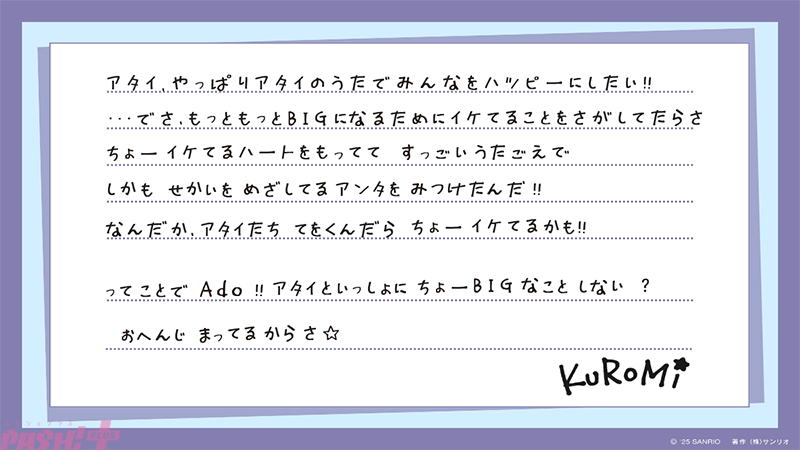 アタイ、やっぱりアタイのうたでみんなをハッピーにしたい!!
・・・でさ、もっともっとBIGになるためにイケてることをさがしてたらさ
ちょーイケてるハートをもってて すっごいうたごえで
しかも せかいを めざしてるアンタを みつけたんだ!!
なんだか、アタイたち てをくんだら ちょーイケてるかも!!
ってことで Ado!! アタイといっしょに ちょーBIGなこと しない ?
おへんじ まってるからさ☆
KUROMi
PASH! PLUS
© '25 SANRIO 著作 (株)サンリオ